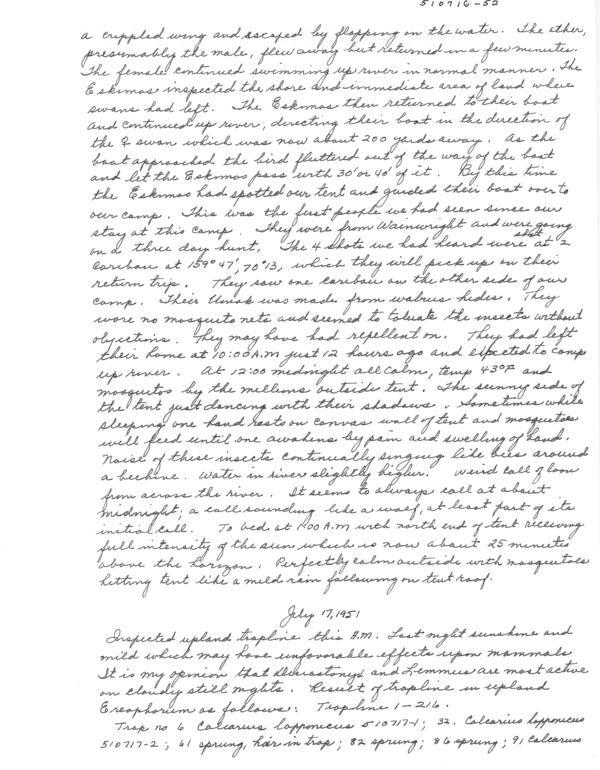 510716-52
a crippled wing and escaped by flapping on the water. The other,
presumably the male, flew away but returned in a few minutes.
The female continued swimming up river in normal manner. The
Eskimos inspected the shore and immediate area of land where
swans had left. The Eskimos then returned to their boat
and continued up river, directing their boat in the direction of
the ♀ swan which was now about 200 yards away. As the
boat approached the bird fluttered out of the way of the boat
and let the Eskimos pass with 30' or 40' of it. By this time
the Eskimos had spotted our tent and guided their boat over to
our camp. This was the first people we had seen since our
stay at this camp. They were from Wainwright and were going
on a three day hunt. The 4 shots we had heard were shot at 2
Caribou at 159° 47', 70° 13, which they will pick up on their
return trip. They saw one caribou on the other side of our
camp. Their Umiak was made from walrus hides. They
wore no mosquito nets and seemed to toluate the insects without
objections. They may have had repellent on. They had left
their home at 10:00 A.M just 12 hours ago and expected to camp
up river. At 12:00 midnight all calm, temp 43°F and
mosquitos by the millions outside tent. The sunny side of
the tent just dancing with their shadows. Sometimes while
sleeping one hand rests on canvas wall of tent and mosquitoes
will feed until one awakens by pain and swelling of hand.
Noise of these insects continually singing like bees around
a beehive. Water in river slightly higher. Weird call of loon
from across the river. It seems to always call at about
midnight; a call sounding like a woof, at least part of its
initial call. To bed at 1:00 A.M with north end of tent receiving
full intensity of the sun which is now about 25 minutes
above the horizon. Perfectly calm outside with mosquitoes
hitting tent like a mild rain following on tent roof.
July 17, 1951
Inspected upland trapline this A.M. Last night sunshine and
mild which may have unfavorable effects upon mammals
It is my opinion that Dicrostonyx and Lemmus are most active
on cloudy still nights. Result of trapline in upland
Ereophorum as follows: Trapline 1-216.
Trap no 6 Calcarius lapponicus 510717-1; 32. Calcarius lapponicus
510717-2; 61 sprung, hair in trap; 82 sprung; 86 sprung; 91 Calcarius